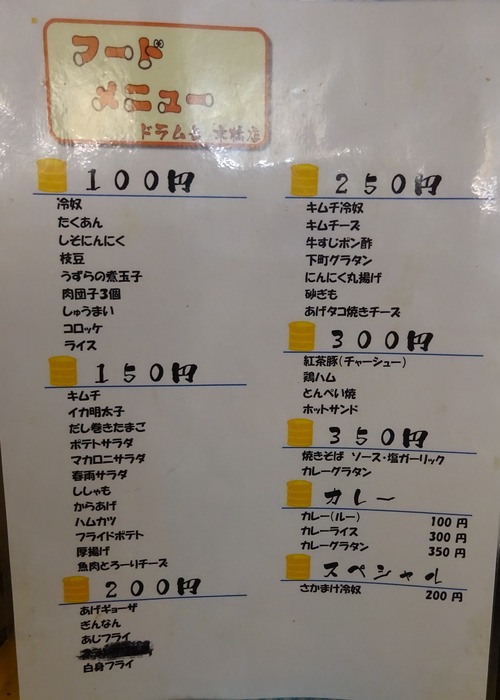 フード
メニュー
ドラム缶 京橋店
100円
冷奴
たくあん
しそにんにく
枝豆
うずらの煮玉子
肉団子3個
しゅうまい
コロッケ
ライス
150円
キムチ
イカ明太子
だし巻きたまご
ポテトサラダ
マカロニサラダ
春雨サラダ
ししゃも
からあげ
ハムカツ
フライドポテト
厚揚げ
魚肉とろーりチーズ
200円
あげギョーザ
ぎんなん
あじフライ
白身フライ
250円
キムチ冷奴
キムチーズ
牛すじポン酢
下町グラタン
にんにく丸揚げ
砂ぎも
あげタコ焼きチーズ
300円
紅茶豚(チャーシュー)
鶏ハム
とんぺい焼
ホットサンド
350円
焼きそば ソース・塩ガーリック
カレーグラタン
カレー
カレー(ルー) 100 円
カレーライス 300 円
カレーグラタン 350 円
スペシャル
さかまけ冷奴 200 円